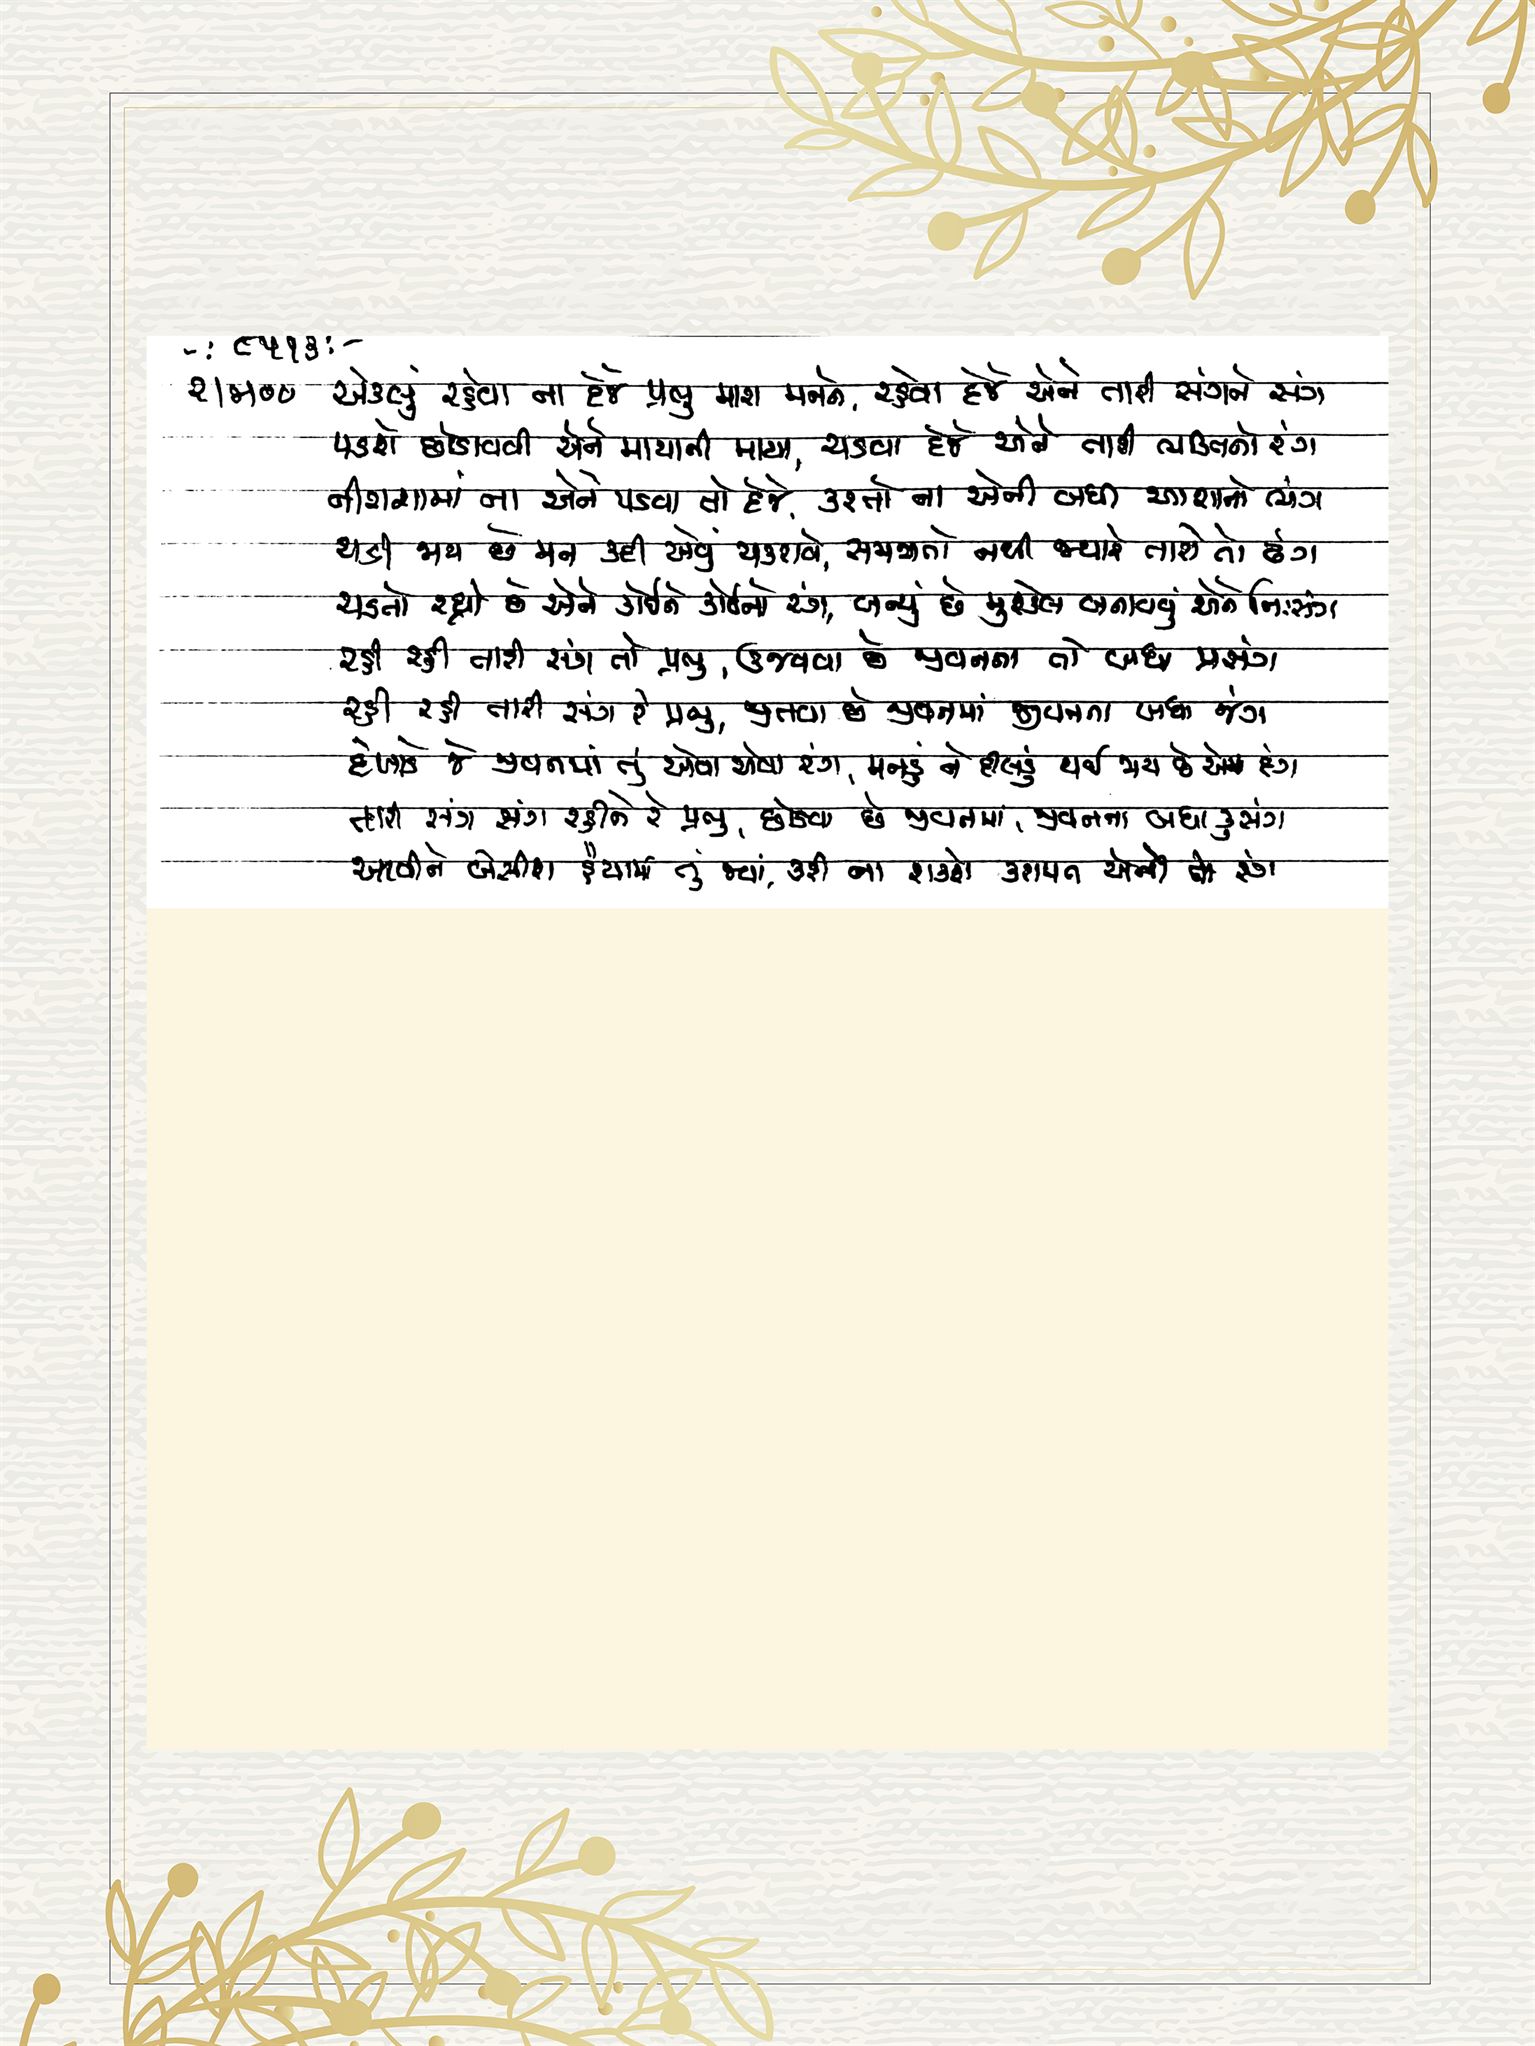 -: ૯૫૧૩:-
એકલું રહેવા ના દેજે પ્રભુ મારા મનને, રહેવા દેજે એને તારી સંગને સંગ
પડશે છોડાવવી એને માયાની માયા, ચડવા દેજે એને તારી ભક્તિનો રંગ
નીરાશામાં ના એને પડવા તો દેજે, કરતો ના એની બધી આશાનો ભંગ
થાકી જાય છે મન કદી એવું ચકરાવે, સમજાતો નથી જ્યારે તારો તો ઢંગ
ચડતો રહ્યો છે એને કોઈને કોઈનો રંગ, બન્યું છે મુશ્કેલ બનાવવું એને નિઃસંગ
રહી રહી તારી સંગ તો પ્રભુ, ઉજવવા છે જીવનના તો બધા પ્રસંગ
રહી રહી તારી સંગ રે પ્રભુ, જીતવા છે જીવનમાં જીવનના બધા જંગ
દેખાડે જે જીવનમાં તું એવા એવા રંગ, મનડું ને દીલડું થઈ જાય છે એમાં દંગ
તારી સંગ સંગ રહીને રે પ્રભુ, છોડવા છે જીવનમાં, જીવનના બધા કુસંગ
આવીને બેસીશ હૈયામાં તું જ્યાં, કરી ના શકશે કરામત એનો રંગ